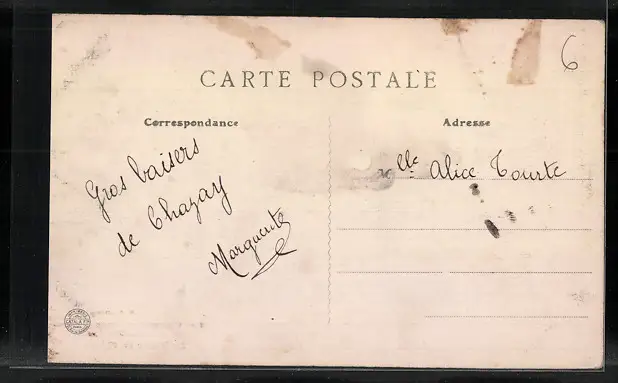 CARTE POSTALE
6
Correspondance
Adresse
Gros baisers
de Chazay
Marguerite
Mlle Alice Tourte